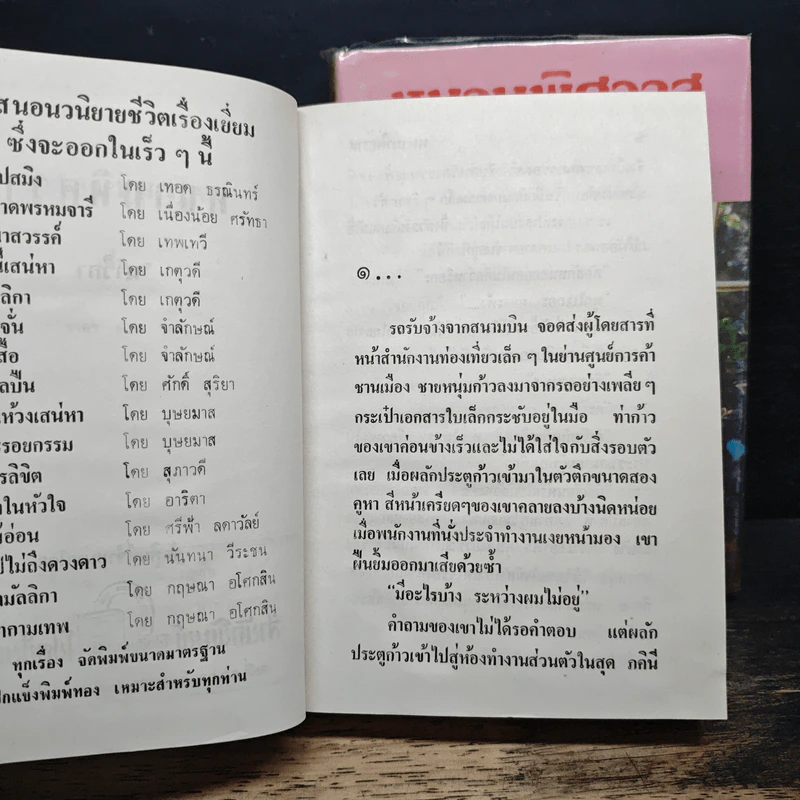 สนอนวนิยายชีวิตเรื่องเยี่ยม
ซึ่งจะออกในเร็ว ๆ นี้
ปสมิง โดย เทอด ธรณินทร์
าดพรหมจารี โดย เนื่องน้อย ศรัทธา
าสวรรค์ โดย เทพเทวี
เสน่หา โดย เกตุวดี
ลิกา โดย เกตุวดี
จั่น โดย จำลักษณ์
สือ โดย จำลักษณ์
ลปืน โดย ศักดิ์ สุริยา
ห้วงเสน่หา โดย บุษยมาส
รอยกรรม โดย บุษยมาส
รลิขิต โดย สุภาวดี
าในหัวใจ โดย อาริตา
อ่อน โดย ศรีฟ้า ลดาวัลย์
ปไม่ถึงดวงดาว โดย นันทนา วีระชน
มัลลิกา โดย กฤษณา อโศกสิน
ากามเทพ โดย กฤษณา อโศกสิน
ทุกเรื่อง จัดพิมพ์ขนาดมาตรฐาน
ปกแข็งพิมพ์ทอง เหมาะสำหรับทุกท่าน
๑...
รถรับจ้างจากสนามบิน จอดส่งผู้โดยสารที่
หน้าสำนักงานท่องเที่ยวเล็ก ๆ ในย่านศูนย์การค้า
ชานเมือง ชายหนุ่มก้าวลงมาจากรถอย่างเพลีย ๆ
กระเป๋าเอกสารใบเล็กกระชับอยู่ในมือ ท่าก้าว
ของเขาค่อนข้างเร็วและไม่ได้ใส่ใจกับสิ่งรอบตัว
เลย เมื่อผลักประตูก้าวเข้ามาในตัวตึกขนาดสอง
คูหา สีหน้าเครียดๆของเขาคลายลงบ้างนิดหน่อย
เมื่อพนักงานที่นั่งประจำทำงานเงยหน้ามอง เขา
ฝืนยิ้มออกมาเสียด้วยซ้ำ
“มีอะไรบ้าง ระหว่างผมไม่อยู่”
คำถามของเขาไม่ได้รอคำตอบ แต่ผลัก
ประตูก้าวเข้าไปสู่ห้องทำงานส่วนตัวในสุด ภคินี